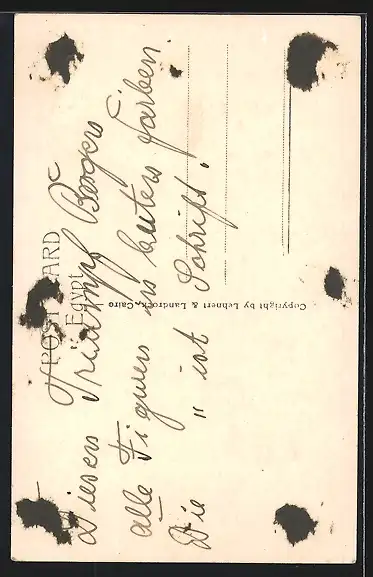 POST CARD
Egypt
Copyright by Lehnert & Landrock, Cairo
Diesen Triumpf Bogen
alle Figuren in bunten Farben.
Die " ist Schrift.